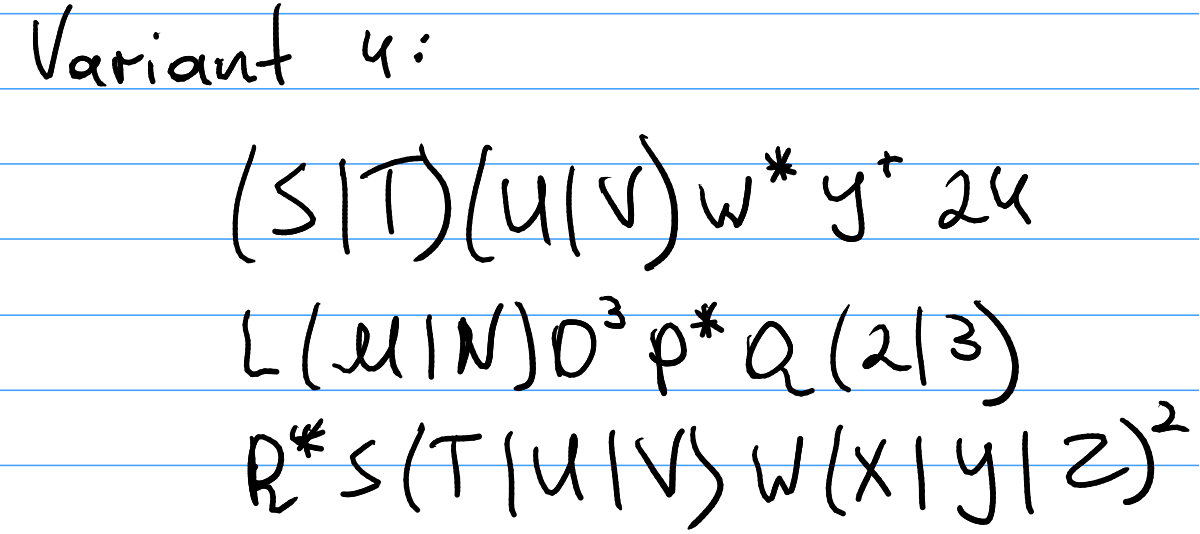 Variant 4:
(S|T)(U|V)W*Y⁺24
L(M|N)O³P*Q(2|3)
R*S(T|U|V)W(X|Y|Z)²